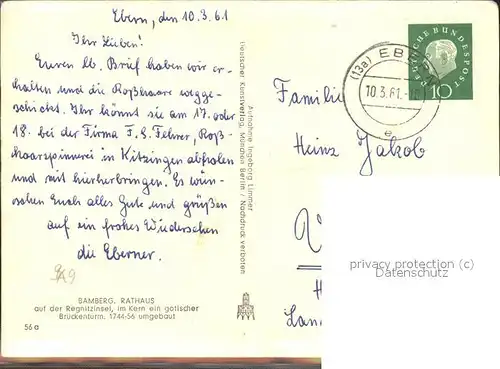 Ebern, den 10.3.61
Ihr Lieben!
Euren lb. Brief haben wir er-
halten und die Roßhaare wegge-
schickt. Ihr könnt sie am 17. oder
18. bei der Firma F. E. Fehrer, Roß-
haarspinnerei in Kitzingen abholen
und mit hierherbringen. Es wün-
schen Euch alles Gute und grüßen
auf ein frohes Wiedersehen
die Eberner.
BAMBERG, RATHAUS
auf der Regnitzinsel, im Kern ein gotischer
Brückenturm, 1744-56 umgebaut
56a
Aufnahme Ingeborg Limmer
Deutscher Kunstverlag, München Berlin / Nachdruck verboten
DEUTSCHE BUNDESPOST
10
(13a) EBERN
10.3.61.
e
Familie
Heinz Jakob
privacy protection (c)
Datenschutz